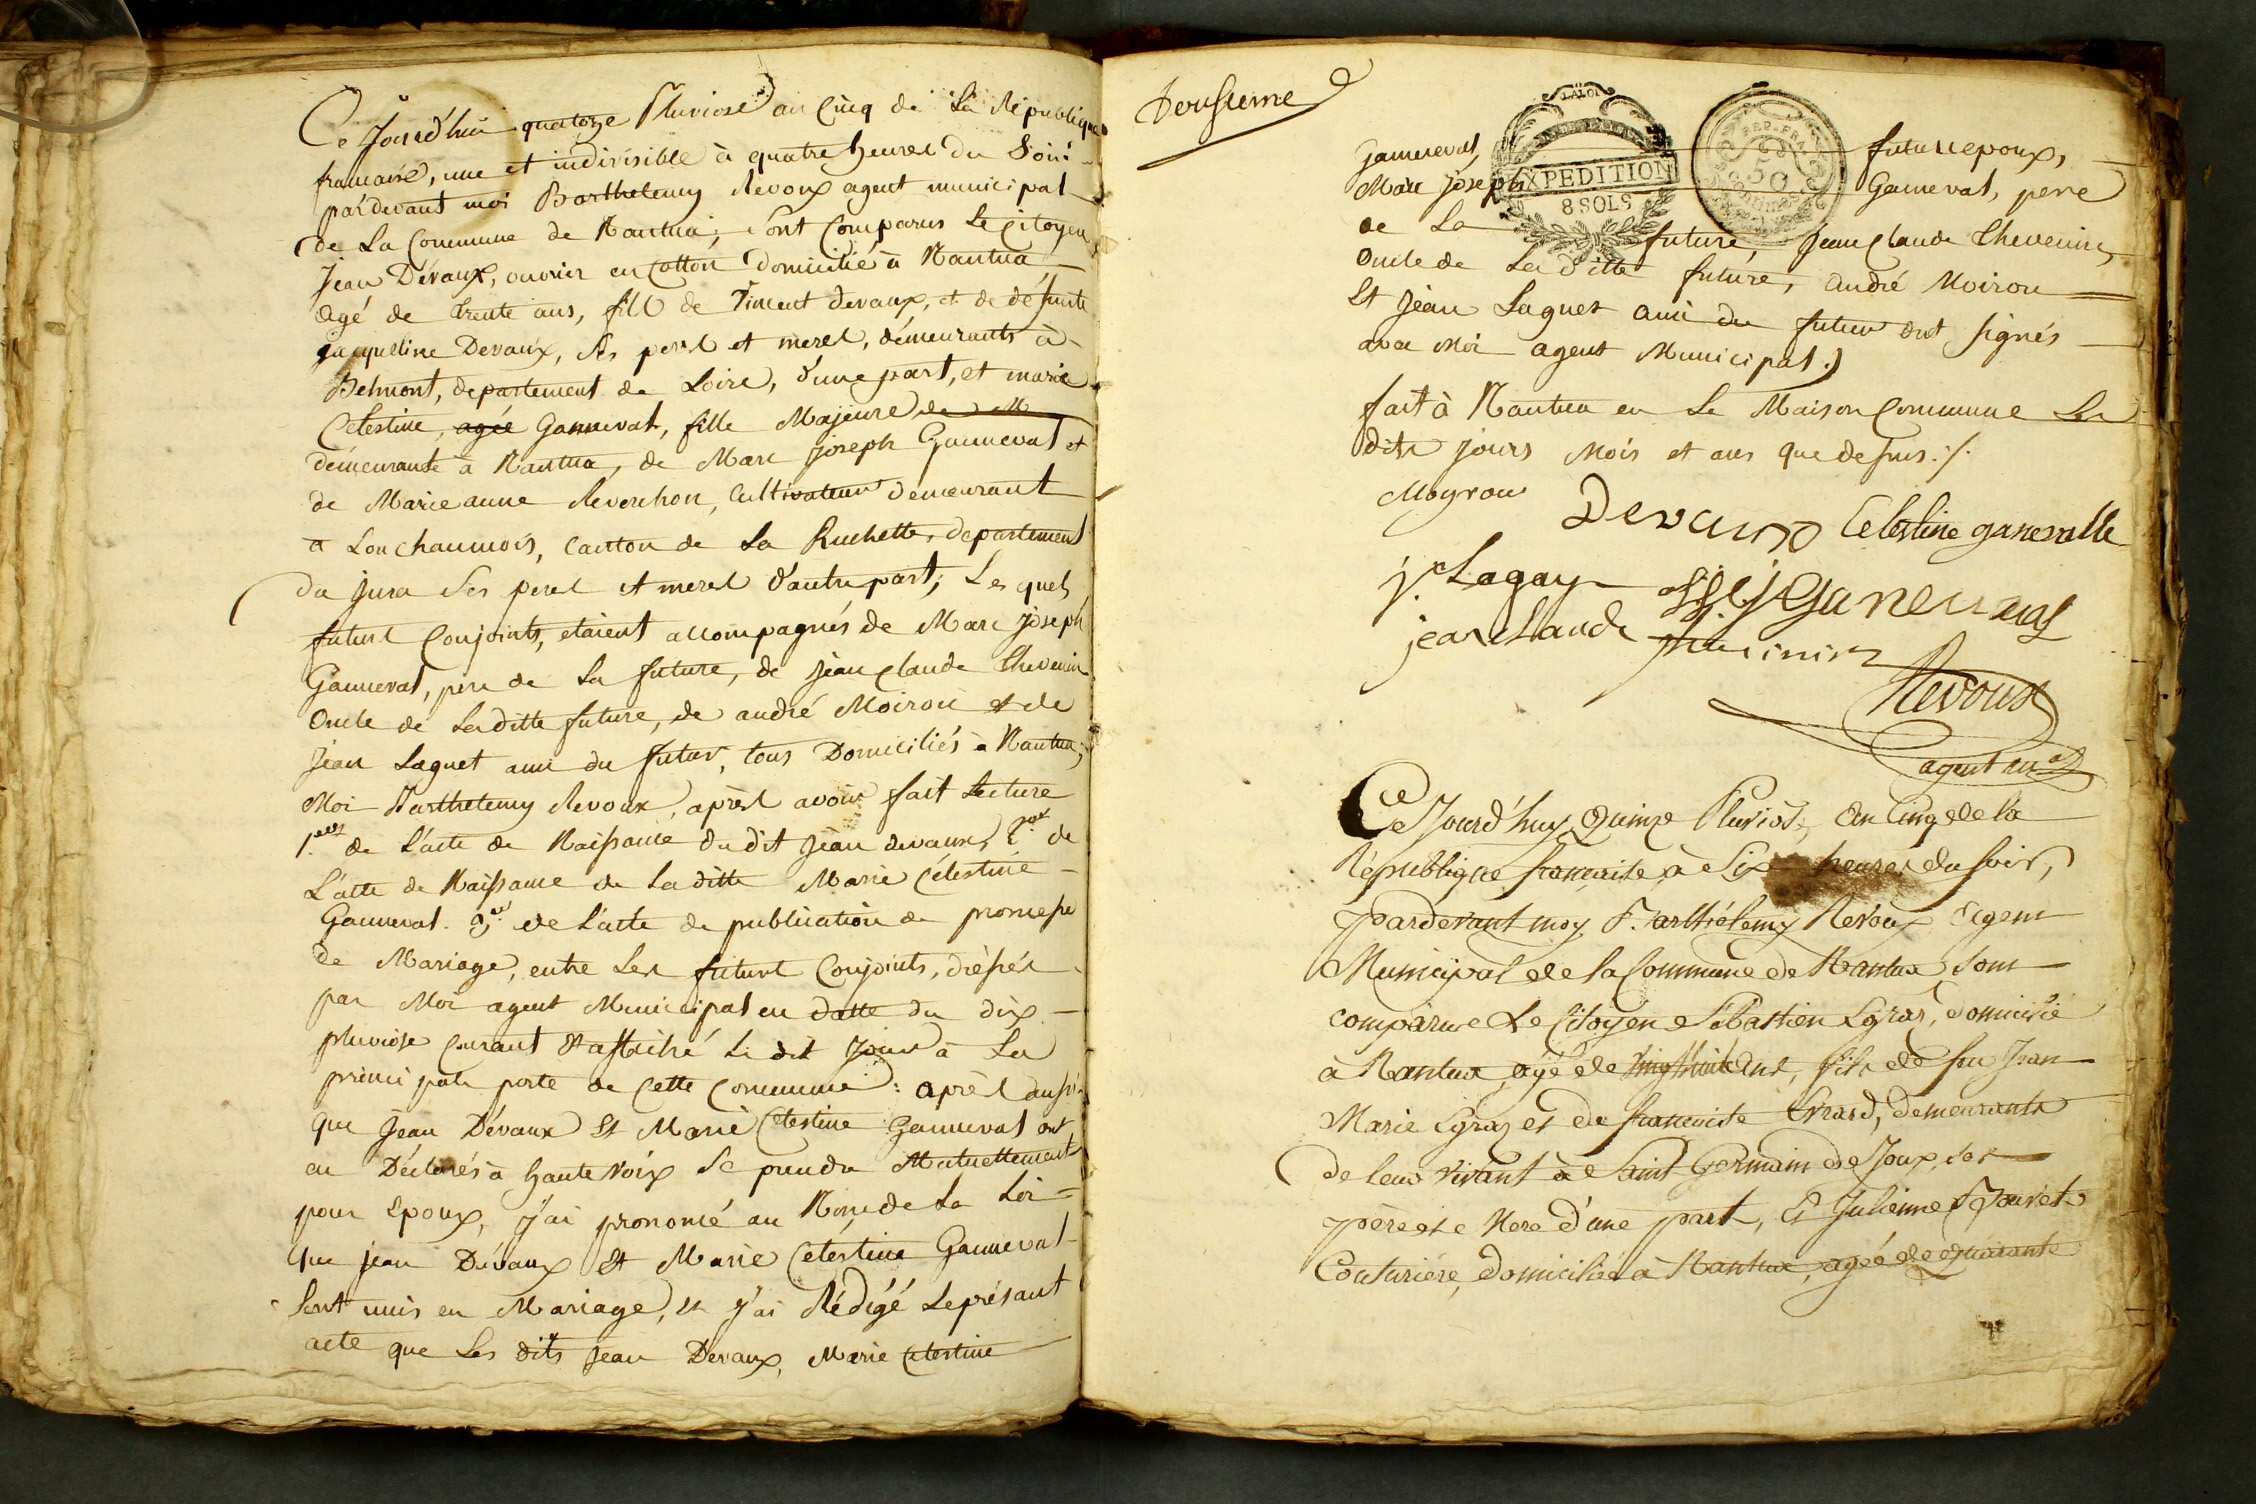 Ce Jourd'hui quatorze Pluviose an Cinq de La République
francaise, une et indivisible à quatre heures du Soir
pardevant moi Barthelemy Revoux agent municipal
de La Commune de Nantua; sont Comparus Le Citoyen
Jean Devaux, ouvrier en Cotton domicilié à Nantua
agé de trente ans, fils de Vincent devaux, et de défunte
Jacqueline Devaux, ses peres et meres, démeurants à
Belmont, departement de Loire, d'une part, et marie
Celestine, agée Ganneval, fille Majeure de M
démeurante à Nantua, de Marc Joseph Ganneval et
de Marie anne Reverchon, Cultivateur demeurant
a Lonchaumois, Canton de La Ruchette, departement
du Jura ses peres et meres d'autre part; Lesquels
futurs Conjoints, etaient accompagnés de Marc Joseph
Ganneval, pere de La future, de Jean Claude Chevenin
Oncle de Laditte future, de andré Moirou et de
Jean Laguet ami du futur, tous Domiciliés à Nantua;
Moi Barthelemy Revoux, aprèsl avoir fait Lecture
1.ent de L'acte de Naissance du dit Jean devaux, 2.ent de
L'acte de Naissance de Laditte Marie Célestine
Ganneval. 3.ent de L'acte de publication de promesse
de Mariage, entre Les futurs Conjoints, dréssés
par Moi agent Municipal en datte du dix
pluviose Courant et affiché Le dit Jour à La
principale porte de Cette Commune: aprèsl aussi
que Jean Dévaux Et Marie Celestine Ganneval ont
eu Déclarés à haute Voix Se prendre Mutuellement
pour Epoux, J'ai prononcé au Nom de La Loi
que Jean Dévaux Et Marie Celestine Ganneval
sont unis en Mariage, et J'ai Rédigé Le présant
acte que Les dits Jean Devaux, Marie Celestine
Deuxieme
LA LOI
EXPEDITION
8 SOLS
REP. FRA.
50
Centimes
Ganneval, futurs epoux,
Marc Joseph Ganneval, pere
de La future, Jean Claude Chevenin,
Oncle de La ditte future, André Moirou
Et Jean Laguet ami du futur ont signés
avec Moi agent Municipal.)
fait à Nantua en Le Maison Commune Les
dits Jours Mois et ans que dessus./.
Moyrou
Devaux Celestine ganevalle
j. Lagay
Ganeval
jean claude
Revoux
agent mal
Ce Jourd'huy Quinze Pluviose, an Cinq de la
République francaise à Six heures du soir,
pardevant moy Barthélemy Revoux Agent
Municipal de la Commune de Nantua, sont
comparus Le Citoyen Sébastien Egraz, domicilié
à Nantua, agé de vingthuit ans, fils de feu Jean
Marie Egraz et de francoise Evrard, demeurants
de leur vivant à Saint Germain de Joux, ses
père et Mere d'une part, Et Julienne
Couturiére, domiciliée à Nantua, agée de quarante